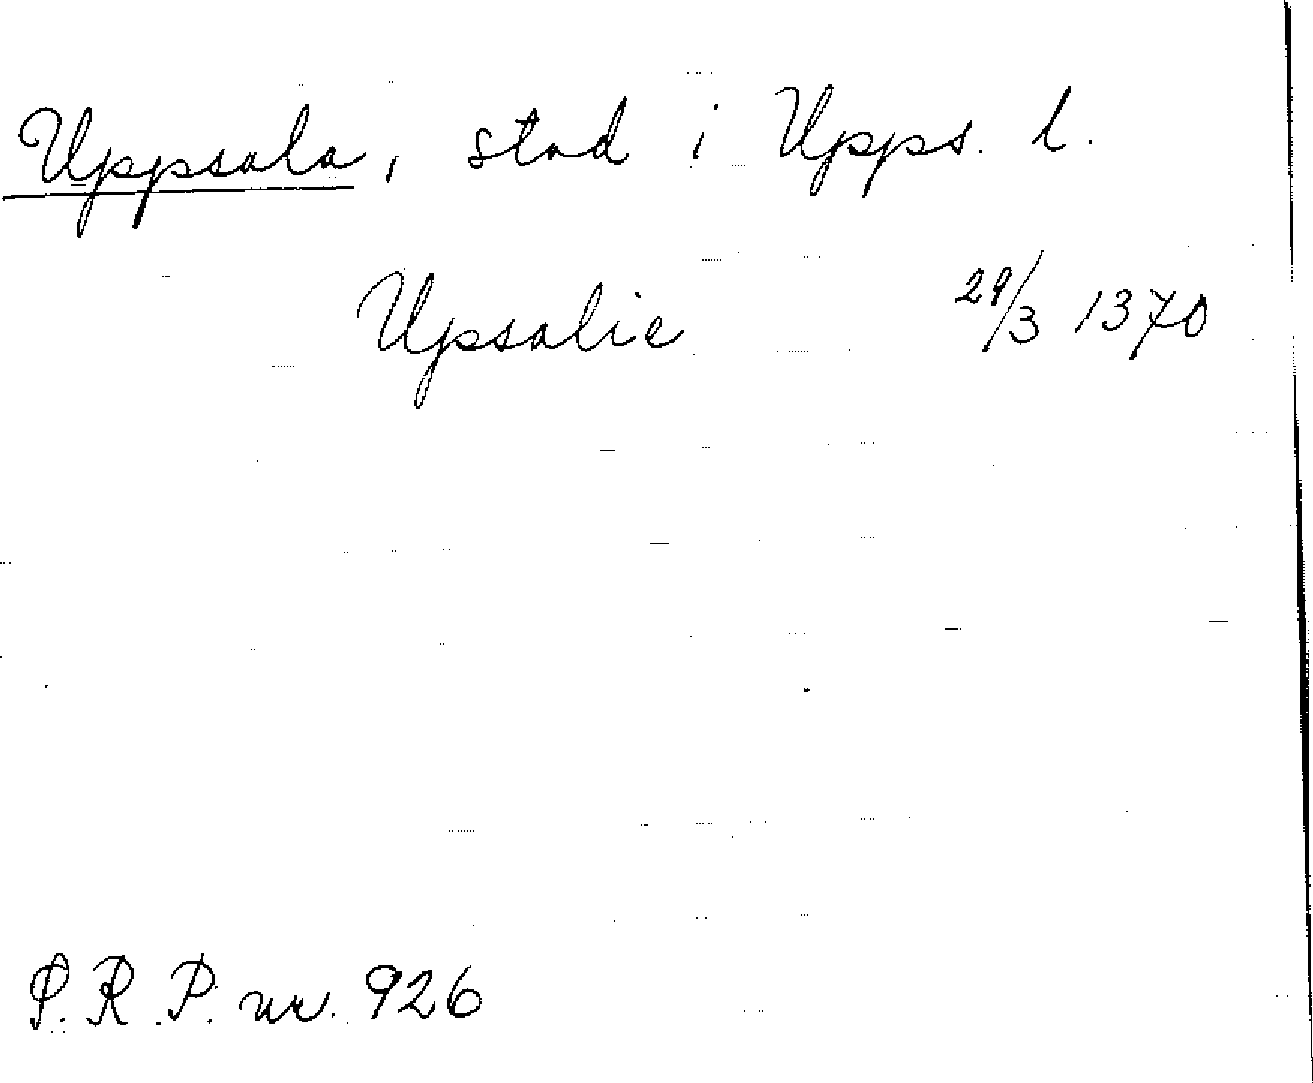 Uppsala, stad i Upps. l.
Upsalie 29/3 1370
S. R. P. nr. 926